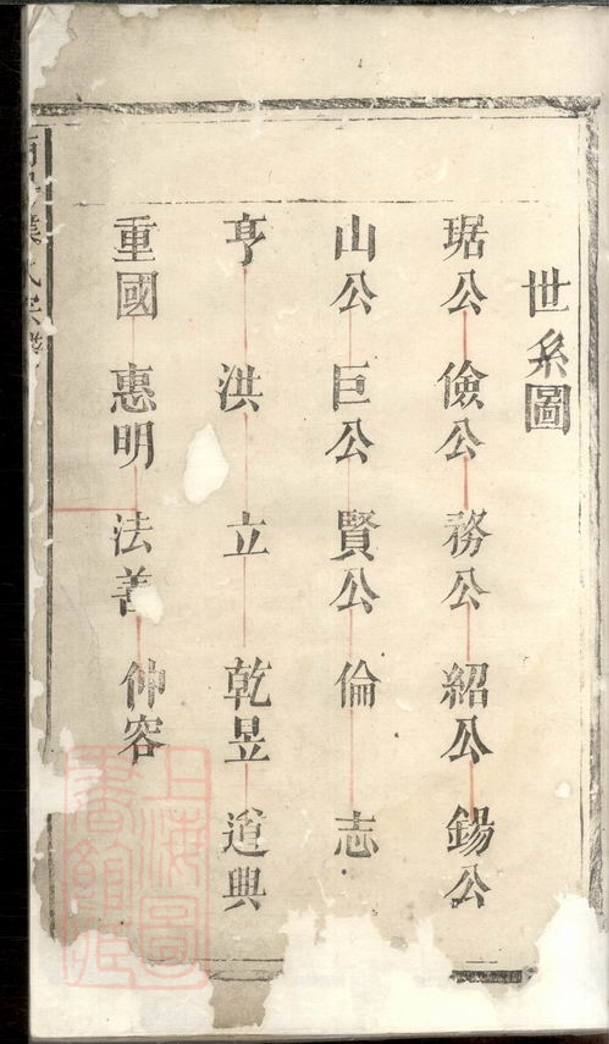 世系圖
琚公 儉公 務公 紹公 錫公
山公 巨公 賢公 倫 志
亨 洪 立 乾昱 道興
重國 惠明 法善 仲容
葉氏宗譜
上海圖書館藏